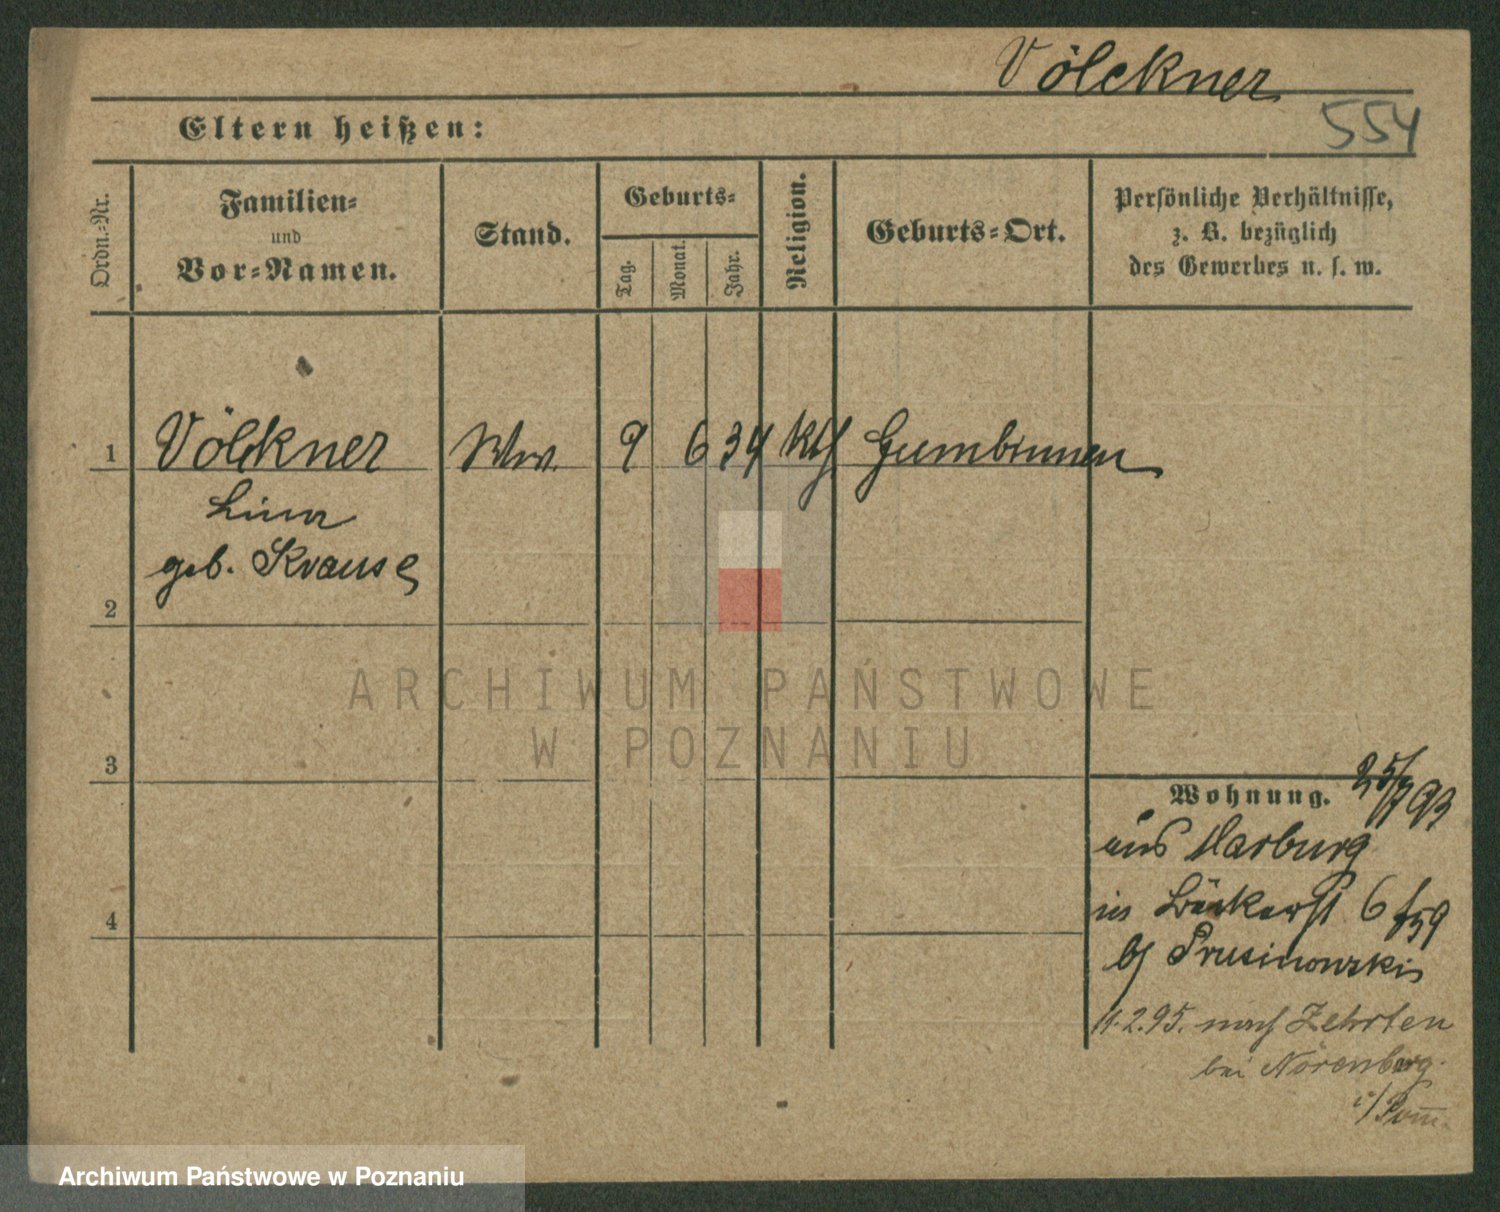 Völckner
554
Eltern heißen:
Ordn.-Nr.
Familien-
und
Vor-Namen.
Stand.
Geburts-
Tag.
Monat.
Jahr.
Religion.
Geburts-Ort.
Persönliche Verhältnisse,
z. B. bezüglich
des Gewerbes u. s. w.
1 Völckner Ww. 9 6 34 Gumbinnen
Lina
geb. Krause
2
3
4
ARCHIWUM PAŃSTWOWE
W POZNANIU
Wohnung. 25/7 93
aus Marburg
in Bäckerst 6
b/ Prusinowski
11.2.95. nach Zehrten
bei Nörenberg
i/Pom.
Archiwum Państwowe w Poznaniu